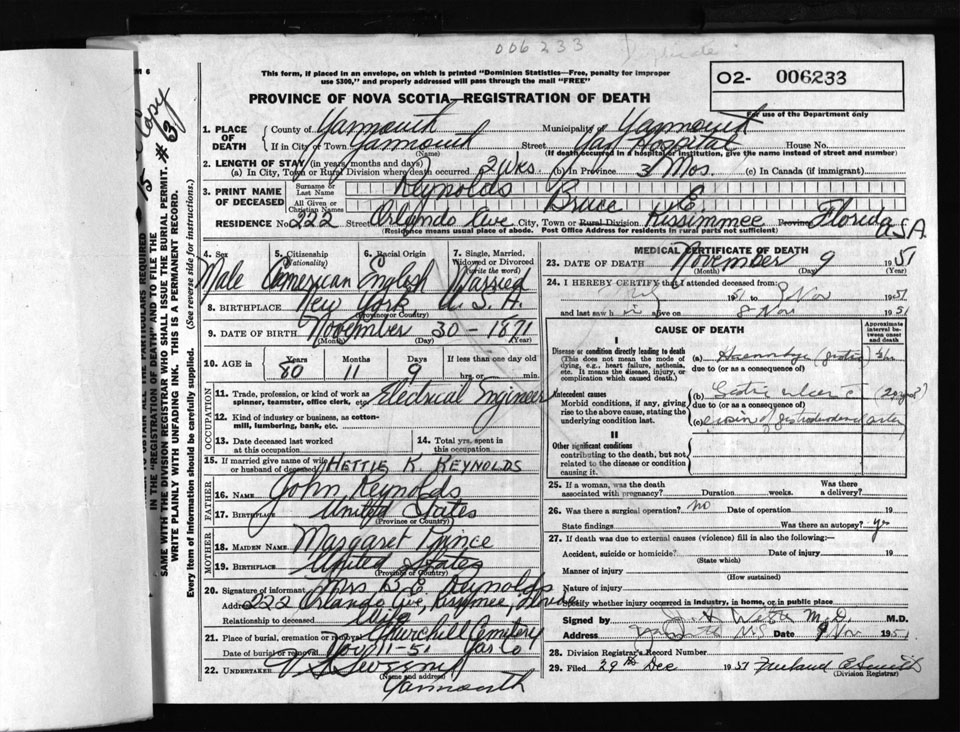 006233 Duplicate
This form, if placed in an envelope, on which is printed "Dominion Statistics—Free, penalty for improper
use $300," and properly addressed will pass through the mail "FREE"
O2- 006233
For use of the Department only
PROVINCE OF NOVA SCOTIA—REGISTRATION OF DEATH
1. PLACE OF DEATH
County of Yarmouth Municipality of Yarmouth
If in City or Town Yarmouth Street Yar Hospital House No.
(Name) (If death occurred in a hospital or institution, give the name instead of street and number)
2. LENGTH OF STAY (in years, months and days)
(a) In City, Town or Rural Division where death occurred 3 Wks. (b) In Province 3 Mos. (c) In Canada (if immigrant)
3. PRINT NAME OF DECEASED
Surname or Last Name Reynolds
All Given or Christian Names Bruce E.
RESIDENCE No. 222 Street Orlando Ave City, Town or Rural Division Kissimmee Province Florida USA
(Residence means usual place of abode. Post Office Address for residents in rural parts not sufficient)
4. Sex 5. Citizenship (Nationality) 6. Racial Origin 7. Single, Married, Widowed or Divorced (Write the word)
Male American English Married
8. BIRTHPLACE New York U.S.A.
(Province or Country)
9. DATE OF BIRTH November 30 - 1871
(Month) (Day) (Year)
10. AGE in Years Months Days If less than one day old
80 11 9 hrs. or min.
OCCUPATION
11. Trade, profession, or kind of work as
spinner, teamster, office clerk, etc. Electrical Engineer
12. Kind of industry or business, as cotton-
mill, lumbering, bank, etc.
13. Date deceased last worked at this occupation 14. Total yrs. spent in this occupation
15. If married give name of wife
or husband of deceased HETTIE K. REYNOLDS
FATHER
16. NAME John Reynolds
17. Birthplace United States
(Province or Country)
MOTHER
18. MAIDEN NAME Margaret Prince
19. BIRTHPLACE United States
(Province or Country)
20. Signature of informant Mrs B.E. Reynolds
Address 222 Orlando Ave, Kissimmee, Florida
Relationship to deceased Wife
21. Place of burial, cremation or removal Churchill Cemetery
Date of burial or removal Nov 11-51 Yar Co
22. UNDERTAKER V.S. Sweeny
(Name and address)
Yarmouth
MEDICAL CERTIFICATE OF DEATH
23. DATE OF DEATH November 9 1951
(Month) (Day) (Year)
24. I HEREBY CERTIFY that I attended deceased from:
1951 to 9 Nov 1951
and last saw him alive on 8 Nov 1951
CAUSE OF DEATH
Approximate interval between onset and death
I
Disease or condition directly leading to death
(This does not mean the mode of
dying, e.g., heart failure, asthenia,
etc. It means the disease, injury, or
complication which caused death.
(a) Haemorrhage (gastric) ½hr
due to (or as a consequence of)
Antecedent causes
Morbid conditions, if any, giving
rise to the above cause, stating the
underlying condition last.
(b) Gastric ulcer c (20 yrs?)
due to (or as a consequence of)
(c) erosion of gastroduodenal artery
II
Other significant conditions
contributing to the death, but not
related to the disease or condition
causing it.
25. If a woman, was the death
associated with pregnancy? Duration weeks. Was there a delivery?
26. Was there a surgical operation? no Date of operation 19
State findings Was there an autopsy? yes
27. If death was due to external causes (violence) fill in also the following:—
Accident, suicide or homicide? Date of injury 19
(State which)
Manner of injury
(How sustained)
Nature of injury
Specify whether injury occurred in industry, in home, or in public place
Signed by Webb M.D. M.D.
Address Yarmouth N.S. Date 9 Nov 1951
28. Division Registrar's Record Number
29. Filed 29th Dec 1951
(Division Registrar)
Copy
# 63
PARTICULARS REQUIRED
IN THE "REGISTRATION OF DEATH" AND TO FILE THE
SAME WITH THE DIVISION REGISTRAR WHO SHALL ISSUE THE BURIAL PERMIT.
WRITE PLAINLY WITH UNFADING INK. THIS IS A PERMANENT RECORD.
Every item of information should be carefully supplied. (See reverse side for instructions.)